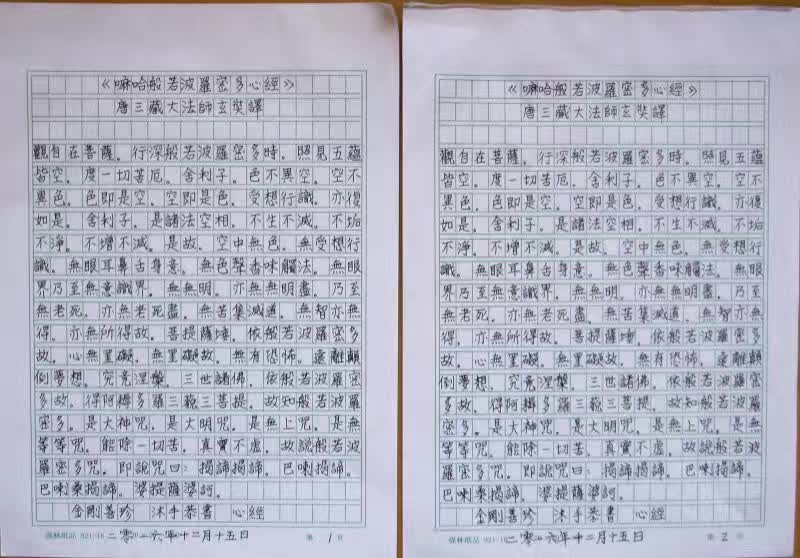 《嘛哈般若波羅密多心經》
唐三藏大法師玄奘譯
觀自在菩薩。行深般若波羅密多時。照見五蘊
皆空。度一切苦厄。舍利子。色不異空。空不
異色。色即是空。空即是色。受想行識。亦復
如是。舍利子。是諸法空相。不生不滅。不垢
不淨。不增不減。是故。空中無色。無受想行
識。無眼耳鼻舌身意。無色聲香味觸法。無眼
界乃至無意識界。無無明。亦無無明盡。乃至
無老死。亦無老死盡。無苦集滅道。無智亦無
得。亦無所得故。菩提薩埵。依般若波羅密多
故。心無罣礙。無罣礙故。無有恐怖。遠離顛
倒夢想。究竟涅槃。三世諸佛。依般若波羅密
多故。得阿耨多羅三藐三菩提。故知般若波羅
密多。是大神咒。是大明咒。是無上咒。是無
等等咒。能除一切苦。真實不虛。故說般若波
羅密多咒。即說咒曰：揭諦揭諦。巴喇揭諦。
巴喇桑揭諦。婆提薩婆訶。
金剛善珍 沐手恭書 心經
強林紙品 821-16 二零一六年十二月十五日 第1頁
《嘛哈般若波羅密多心經》
唐三藏大法師玄奘譯
觀自在菩薩。行深般若波羅密多時。照見五蘊
皆空。度一切苦厄。舍利子。色不異空。空不
異色。色即是空。空即是色。受想行識。亦復
如是。舍利子。是諸法空相。不生不滅。不垢
不淨。不增不減。是故。空中無色。無受想行
識。無眼耳鼻舌身意。無色聲香味觸法。無眼
界乃至無意識界。無無明。亦無無明盡。乃至
無老死。亦無老死盡。無苦集滅道。無智亦無
得。亦無所得故。菩提薩埵。依般若波羅密多
故。心無罣礙。無罣礙故。無有恐怖。遠離顛
倒夢想。究竟涅槃。三世諸佛。依般若波羅密
多故。得阿耨多羅三藐三菩提。故知般若波羅
密多。是大神咒。是大明咒。是無上咒。是無
等等咒。能除一切苦。真實不虛。故說般若波
羅密多咒。即說咒曰：揭諦揭諦。巴喇揭諦。
巴喇桑揭諦。婆提薩婆訶。
金剛善珍 沐手恭書 心經
強林紙品 821-16 二零一六年十二月十五日 第2頁